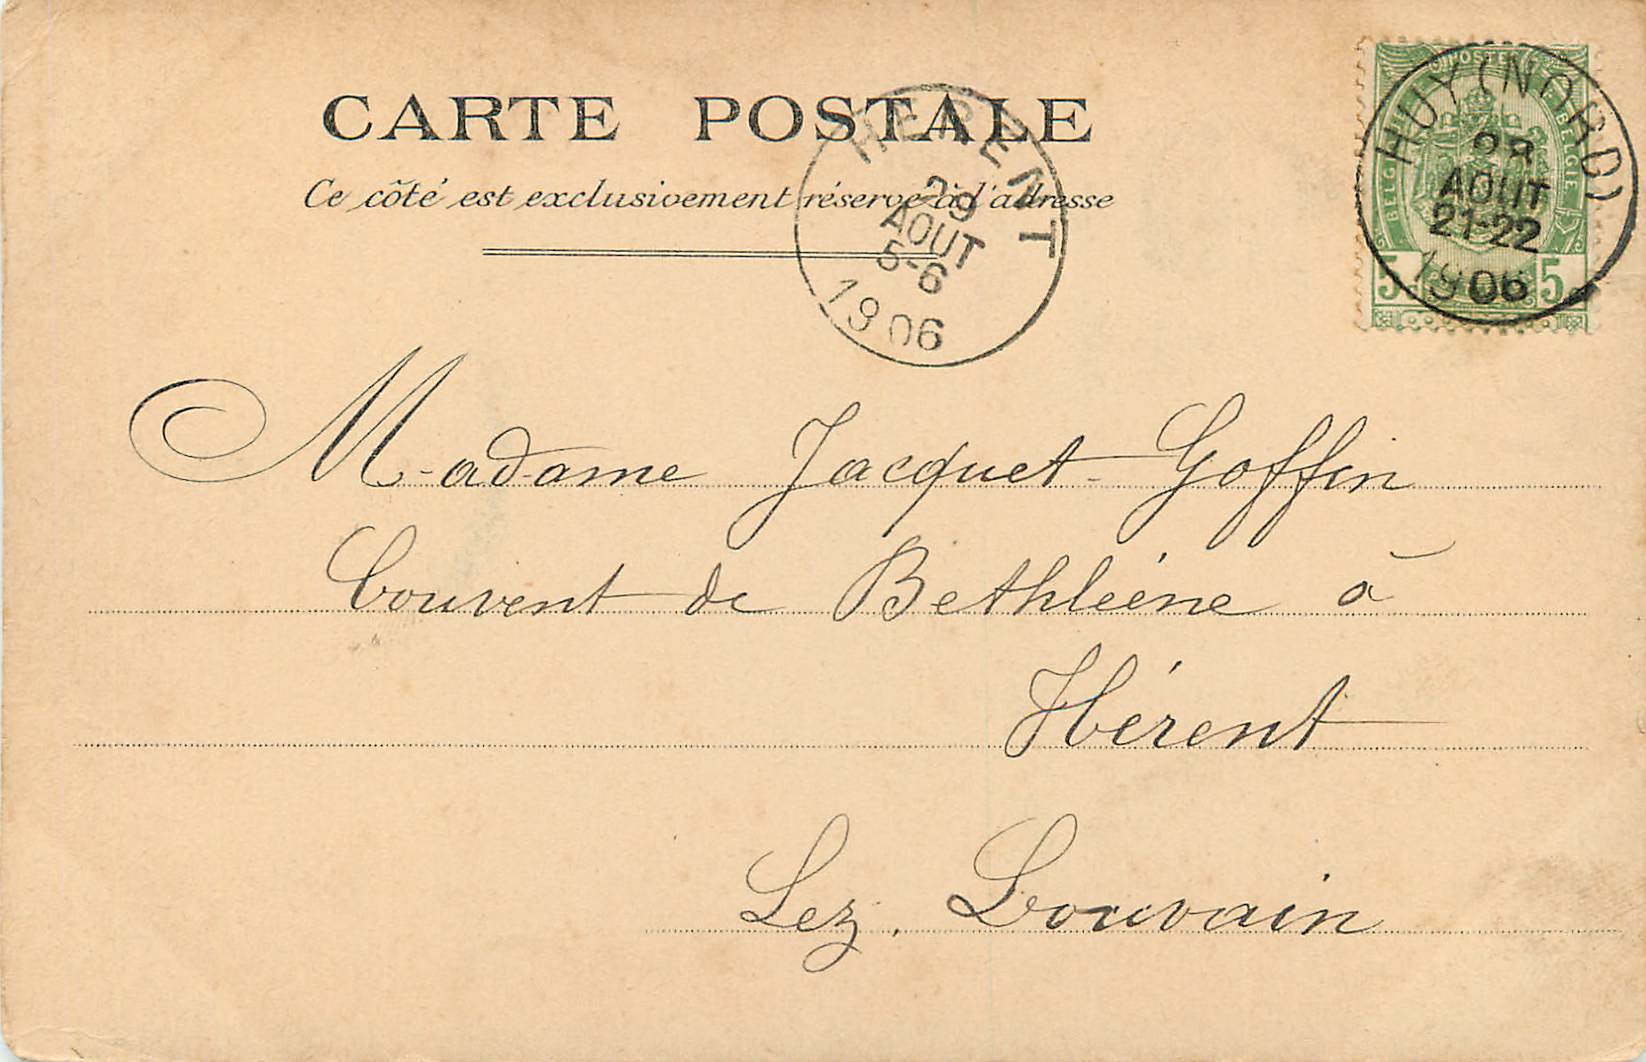 CARTE POSTALE
Ce côté est exclusivement réservé à l'adresse
HERENT
29
AOUT
5-6
1906
HUY (NORD)
28
AOUT
21-22
1906
POSTES
BELGIE
BELGIQUE
5 5
Madame Jacquet-Goffin
Couvent de Bethléène à
Hérent
Lez, Louvain